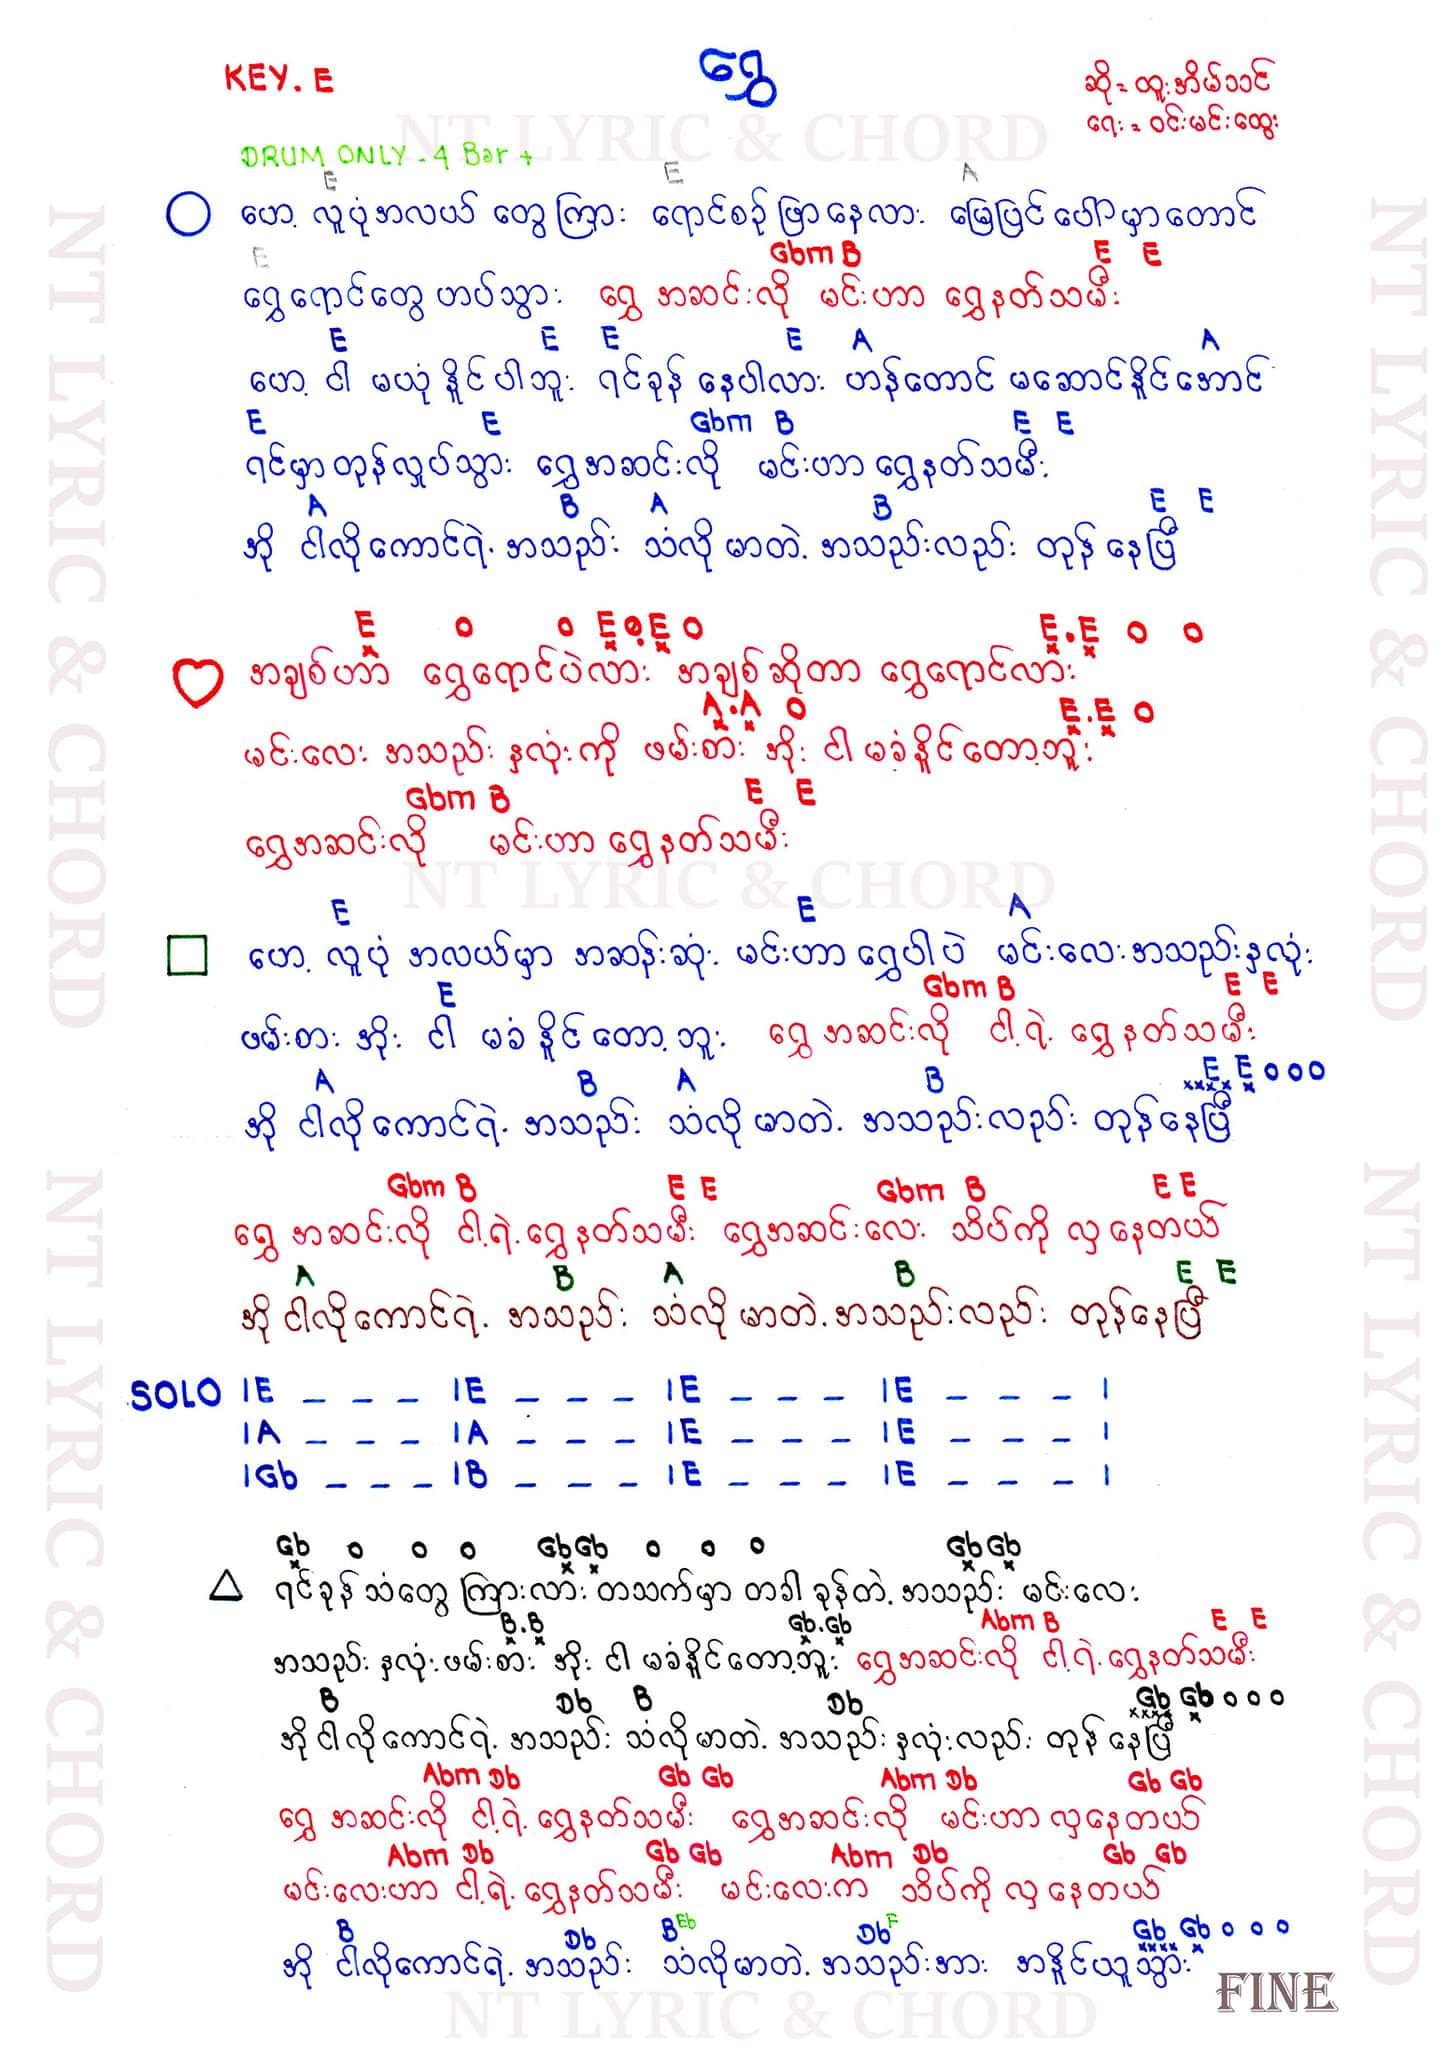 KEY. E
ရွှေ
ဆို = ထူးအိမ်သင်
ရေး = ဝင်းမင်းထွေး
DRUM ONLY - 4 Bar +
E E A
ဟေ့ လူပုံအလယ် တွေ့ကြား ရောင်စဉ် ဖြာနေလား မြေပြင်ပေါ်မှာတောင်
E Gbm B E E
ရွှေရောင်တွေ ဟပ်သွား ရွှေ အဆင်းလို မင်းဟာ ရွှေနတ်သမီး
E E E E A A
ဟေ့ ငါ မယုံနိူင်ပါဘူး ရင်ခုန် နေပါလား ဟန်တောင် မဆောင်နိူင်အောင်
E E Gbm B E E
ရင်မှာတုန်လှုပ်သွား ရွှေအဆင်းလို မင်းဟာ ရွှေနတ်သမီး
A B A B E E
အို ငါလိုကောင်ရဲ့ အသည်း သံလိုမာတဲ့ အသည်းလည်း တုန်နေပြီ
E o o E o E o E . E o o
အချစ်ဟာ ရွှေရောင်ပဲလား အချစ်ဆိုတာ ရွှေရောင်လား
A . A o E . E o
မင်းလေး အသည်းနှလုံးကို ဖမ်းစား အိုး ငါ မခံနိူင်တော့ဘူး
Gbm B E E
ရွှေအဆင်းလို မင်းဟာ ရွှေနတ်သမီး
E E A
ဟေ့ လူပုံ အလယ်မှာ အဆန်းဆုံး မင်းဟာ ရွှေပါပဲ မင်းလေးအသည်းနှလုံး
E Gbm B E E
ဖမ်းစား အိုး ငါ မခံနိူင်တော့ဘူး ရွှေအဆင်းလို ငါ့ရဲ့ ရွှေနတ်သမီး
A B A B E E o o o
xxxx x
အို ငါလိုကောင်ရဲ့ အသည်း သံလိုမာတဲ့ အသည်းလည်း တုန်နေပြီ
Gbm B E E Gbm B E E
ရွှေ အဆင်းလို ငါ့ရဲ့ ရွှေနတ်သမီး ရွှေအဆင်းလေး သိပ်ကို လှနေတယ်
A B A B E E
အို ငါလိုကောင်ရဲ့ အသည်း သံလိုမာတဲ့ အသည်းလည်း တုန်နေပြီ
SOLO | E _ _ _ | E _ _ _ | E _ _ _ | E _ _ _ |
| A _ _ _ | A _ _ _ | E _ _ _ | E _ _ _ |
| Gb _ _ _ | B _ _ _ | E _ _ _ | E _ _ _ |
Gb o o o Gb Gb o o o Gb Gb
ရင်ခုန်သံတွေ ကြားလား တသက်မှာ တခါခုန်တဲ့ အသည်း မင်းလေး
B . B Gb . Gb Abm B E E
အသည်းနှလုံးဖမ်းစား အိုး ငါ မခံနိူင်တော့ဘူး ရွှေအဆင်းလို ငါ့ရဲ့ ရွှေနတ်သမီး
B Db B Db Gb Gb o o o
xxxx x
အို ငါလိုကောင်ရဲ့ အသည်း သံလိုမာတဲ့ အသည်းနှလုံးလည်း တုန်နေပြီ
Abm Db Gb Gb Abm Db Gb Gb
ရွှေ အဆင်းလို ငါ့ရဲ့ ရွှေနတ်သမီး ရွှေအဆင်းလို မင်းဟာ လှနေတယ်
Abm Db Gb Gb Abm Db Gb Gb
မင်းလေးဟာ ငါ့ရဲ့ ရွှေနတ်သမီး မင်းလေးက သိပ်ကို လှနေတယ်
B Db B Eb Db F Gb Gb o o o
xxxx x
အို ငါလိုကောင်ရဲ့ အသည်း သံလိုမာတဲ့ အသည်းအား အနိူင်ယူသွား
FINE
NT LYRIC & CHORD
NT LYRIC & CHORD
NT LYRIC & CHORD
NT LYRIC & CHORD
NT LYRIC & CHORD
NT LYRIC & CHORD
NT LYRIC & CHORD